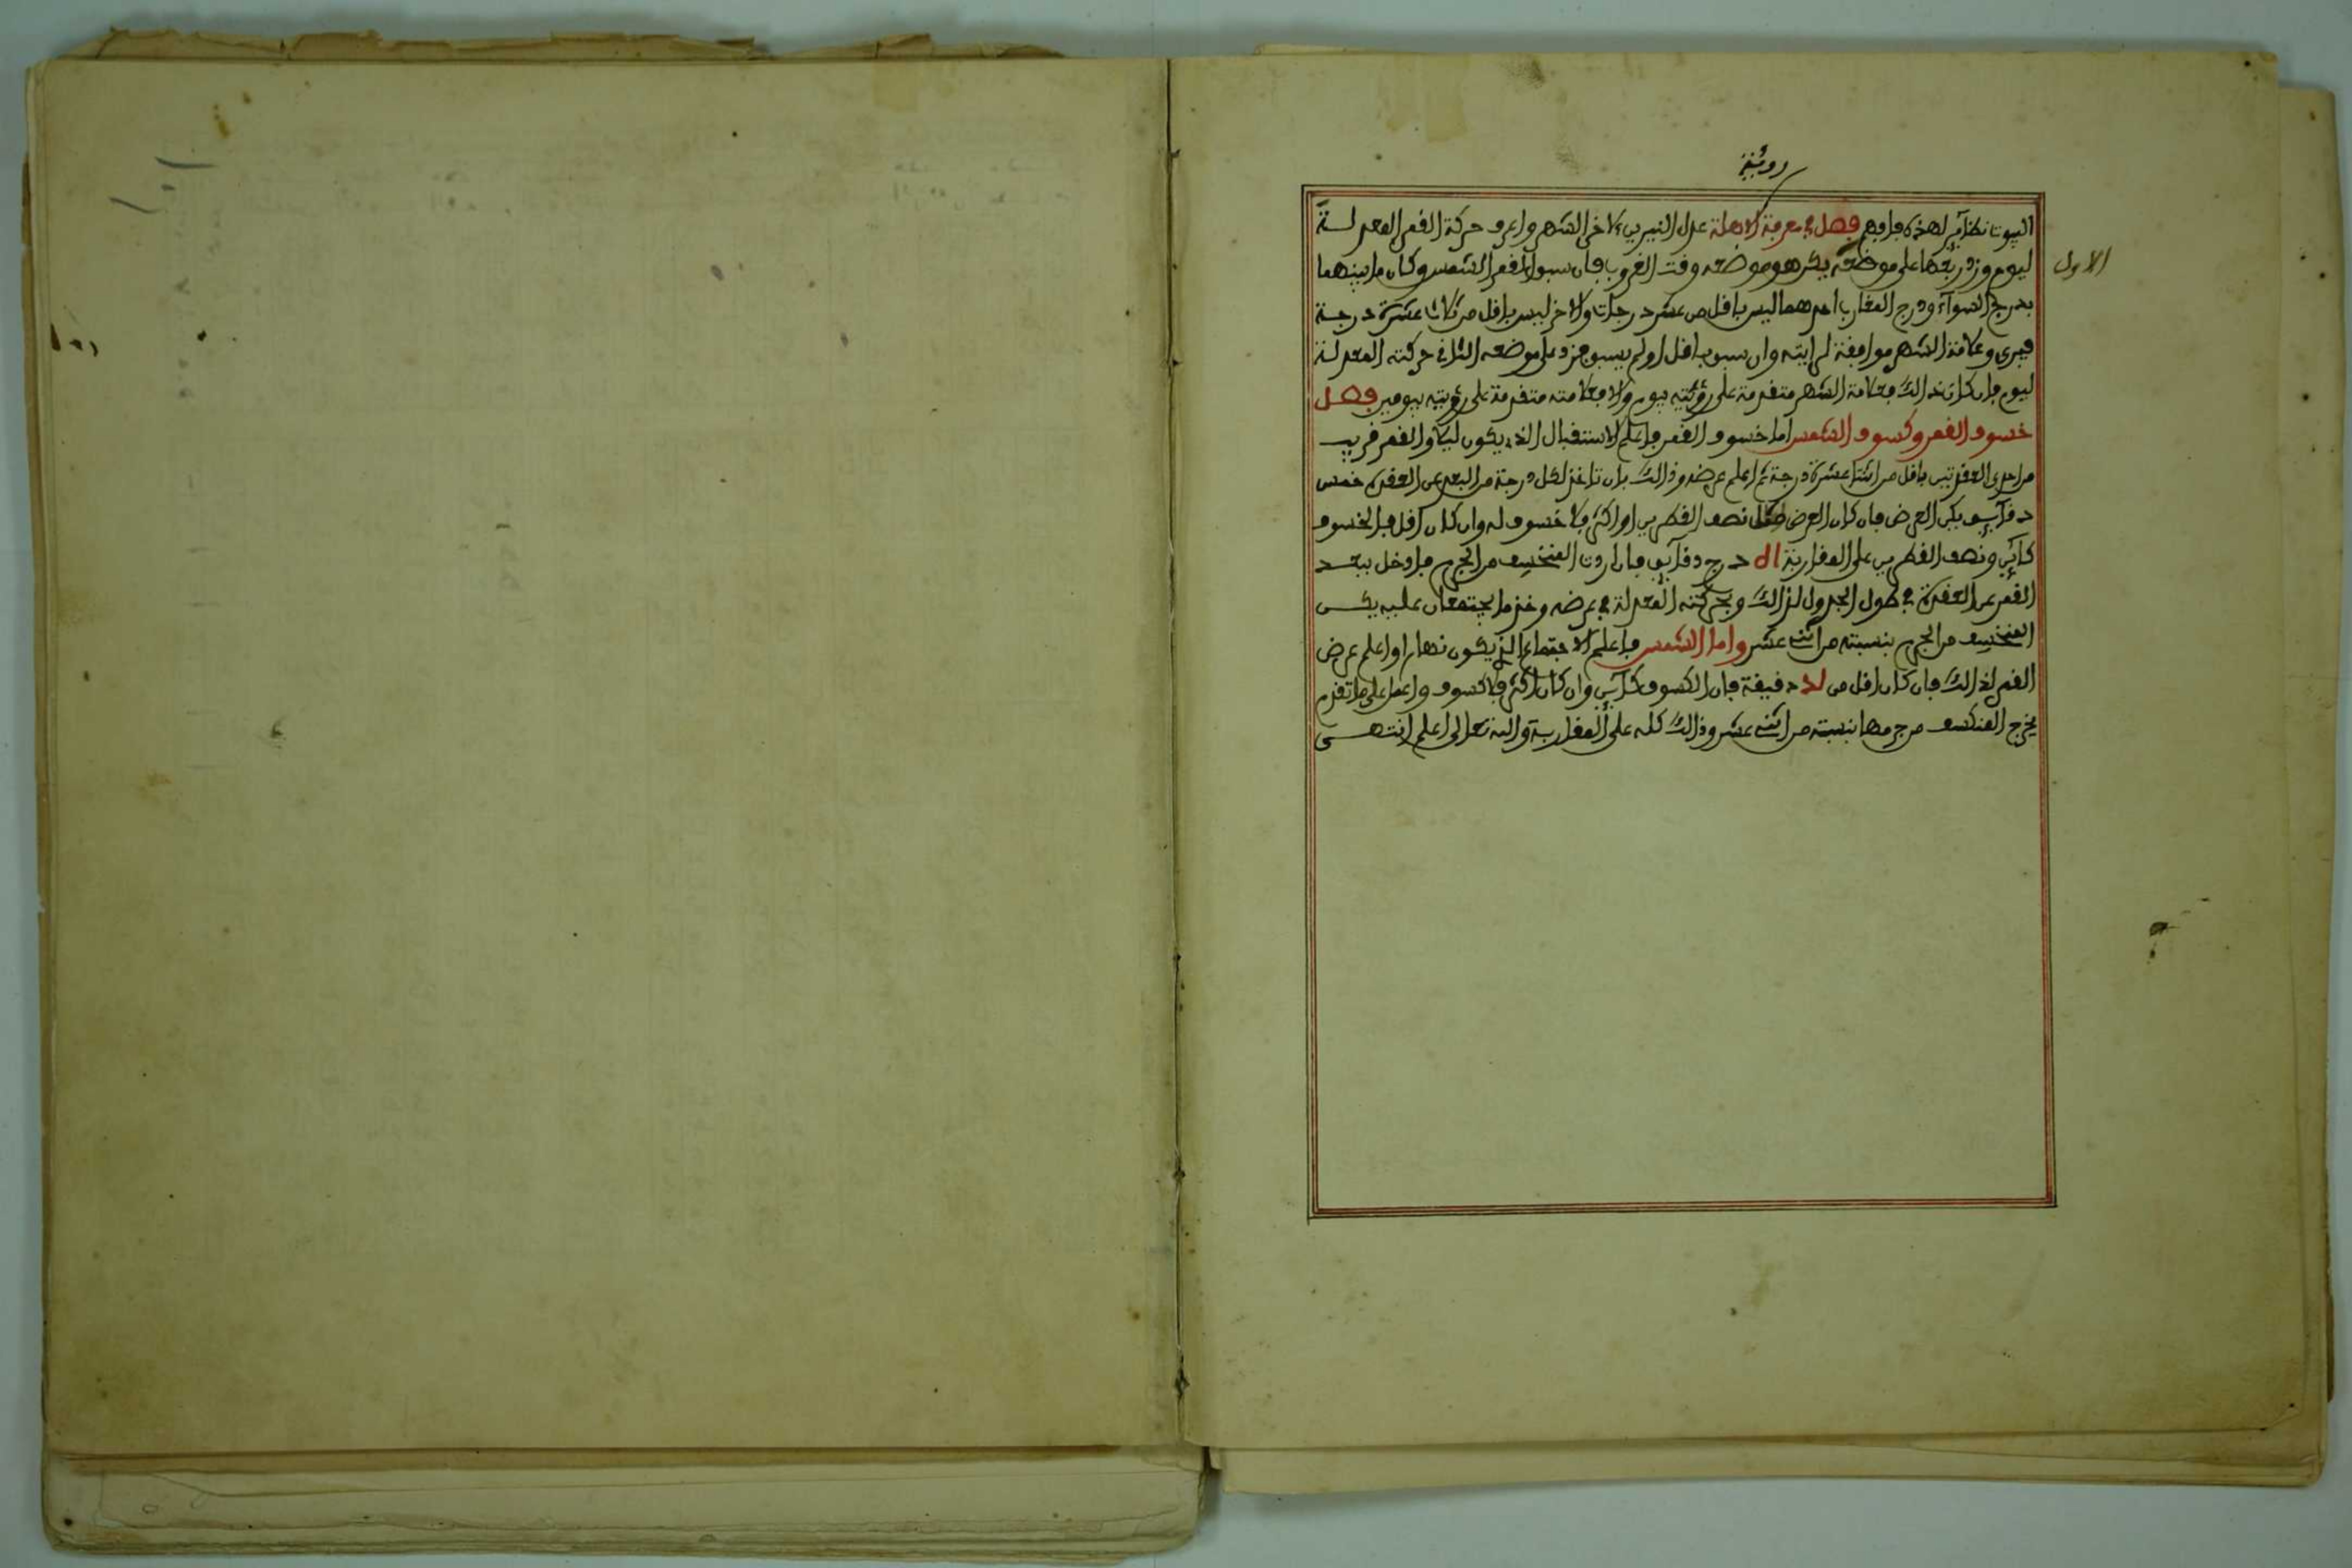 رؤية
البيوت نظائر لهذه فافهم فصل في معرفة الاهلة عدل النيرين لاخر الشهر واعرف حركة القمر المعدلة
ليوم وزد ربعها على موضعه يكن هو موضعه وقت الغروب فان سبق القمر الشمس وكان ما بينهما
الاول
بدرج السوآء ودرج المغارب احدهما ليس باقل من عشر درجات والاخر ليس باقل من ثلاث عشرة درجة
فيرى وعلامة الشهر موافقة لرايته وان سبق باقل او لم يسبق فزد على موضعه الثاني حركته المعدلة
ليوم فان كان ذالك فعلامة الشهر متقدمة على رؤيته بيوم والا فعلامته متقدمة على رؤيته بيومين فصل
خسوف القمر وكسوف الشمس اما خسوف القمر فاعلم الاستقبال الذي يكون ليلا والقمر قريب
من احدى العقدتين باقل من اثنا عشرة درجة ثم اعلم عرضه وذالك بان تاخذ لكل درجة من البعد عن العقدة خمس
دقآئق يكن العرض فان كان العرض مثل نصف القطرين او اكثر فلا خسوف له وان كان اقل فالخسوف
كائن ونصف القطرين على المقاربة ا ل درج ودقآئق فان اردت المنخسف من الجرم فادخل ببعد
القمر عن العقدة في طول الجدول لذالك وبحركته المعدلة في عرضه وخذ ما يجتمعان عليه يكن
المنخسف من الجرم بنسبته من اثنى عشر واما الشمس فاعلم الاجتماع الذي يكون نهارا واعلم عرض
القمر لذالك فان كان اقل من لد دقيقة فان الكسوف كآئن وان كان اكثر فلا كسوف واعمل على ما تقدم
يخرج المنكسف من جرمها بنسبته من اثنى عشر وذالك كله على المقاربة والله تعالى اعلم انتهى